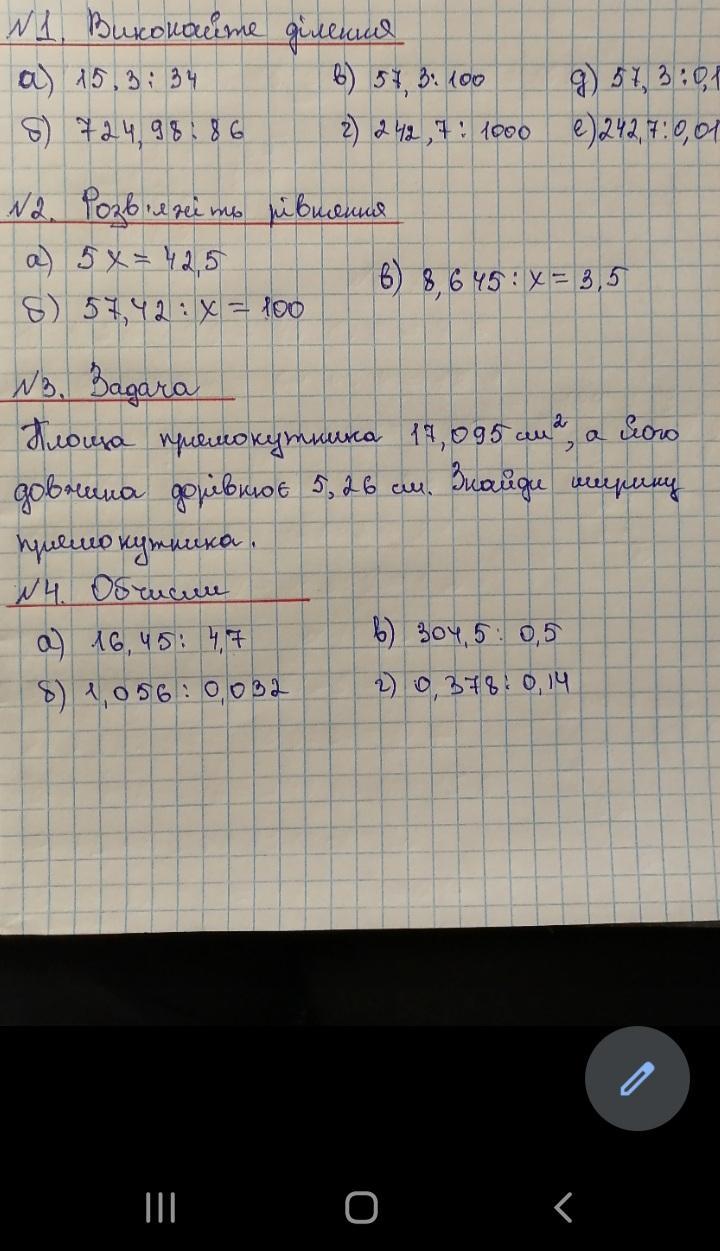 №1. Виконайте ділення
а) 15,3 : 34 в) 57,3 : 100 д) 57,3 : 0,1
б) 724,98 : 86 г) 242,7 : 1000 е) 242,7 : 0,01
№2. Розв'яжіть рівняння
а) 5x = 42,5
в) 8,645 : x = 3,5
б) 57,42 : x = 100
№3. Задача
Площа прямокутника 17,095 см², а його
довжина дорівнює 5,26 см. Знайди ширину
прямокутника.
№4. Обчисли
а) 16,45 : 4,7 в) 304,5 : 0,5
б) 1,056 : 0,032 г) 0,378 : 0,14